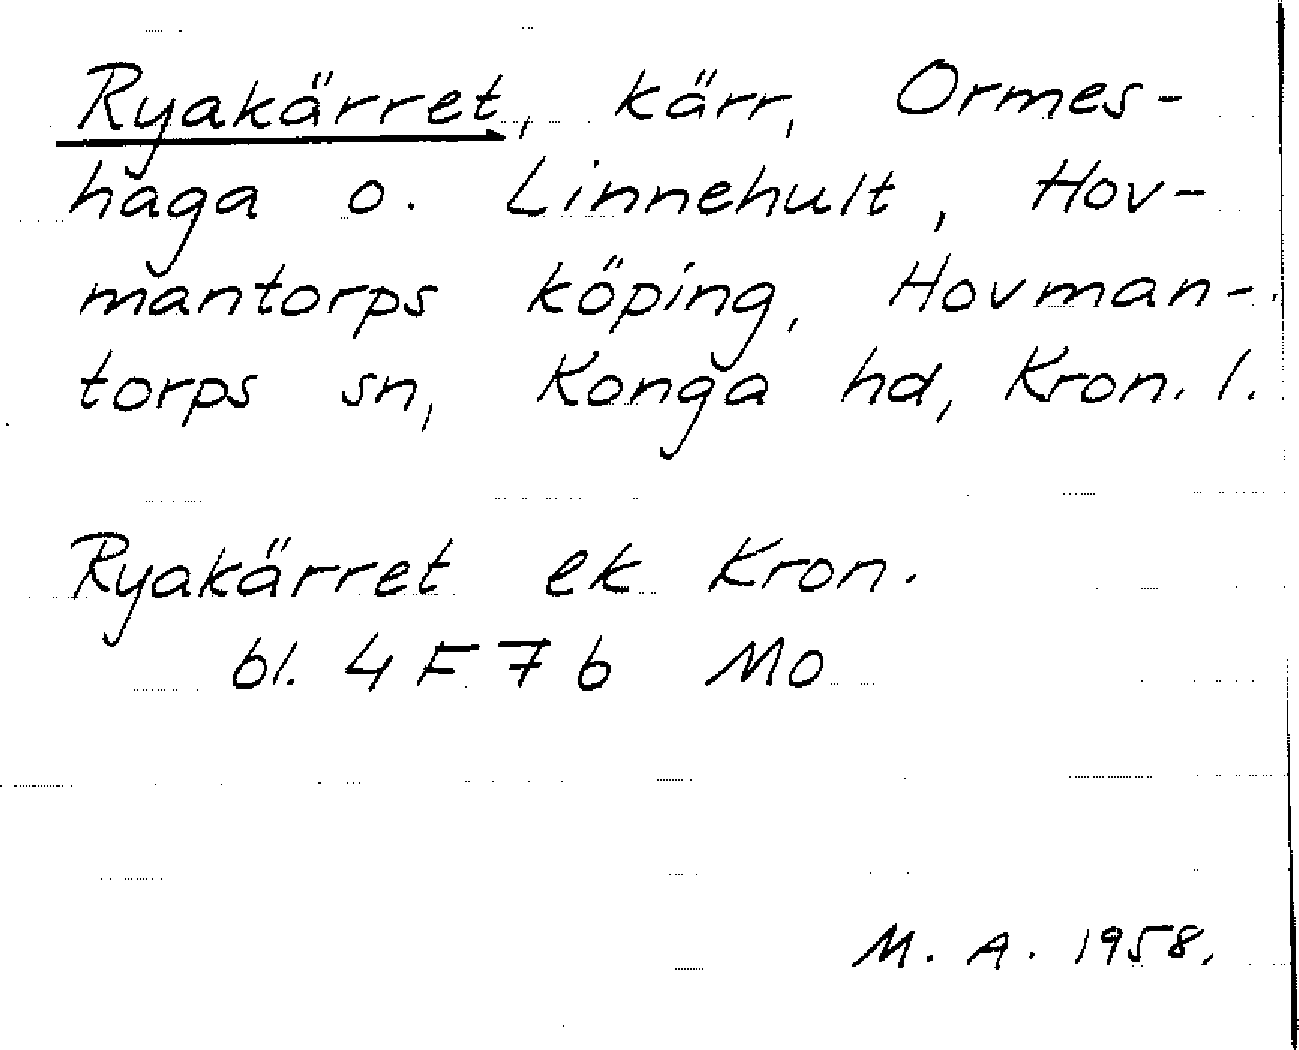 Ryakärret, kärr, Ormes-
haga o. Linnehult, Hov-
mantorps köping, Hovman-
torps sn, Konga hd, Kron. l.
Ryakärret ek Kron.
bl. 4 F 7 b Mo
M. A. 1958.